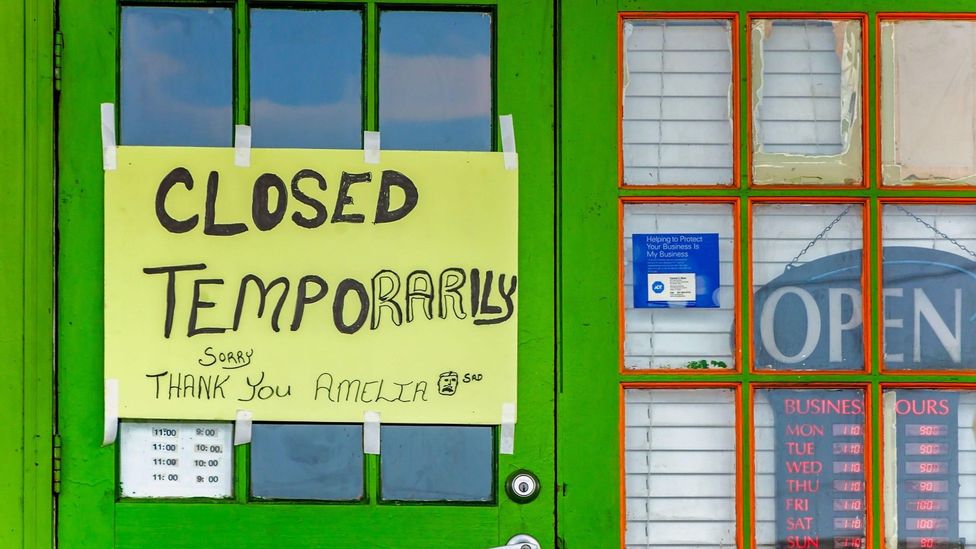 CLOSED
TEMPORARILY
SORRY
THANK YOU AMELIA SAD
11:00 9:00
11:00 10:00
11:00 10:00
11:00 9:00
Helping to Protect
Your Business Is
My Business
ADT
OPEN
BUSINESS OURS
MON 110 900
TUE 110 900
WED 110 900
THU 110 900
FRI 110 100
SAT 110 100
SUN 110 900